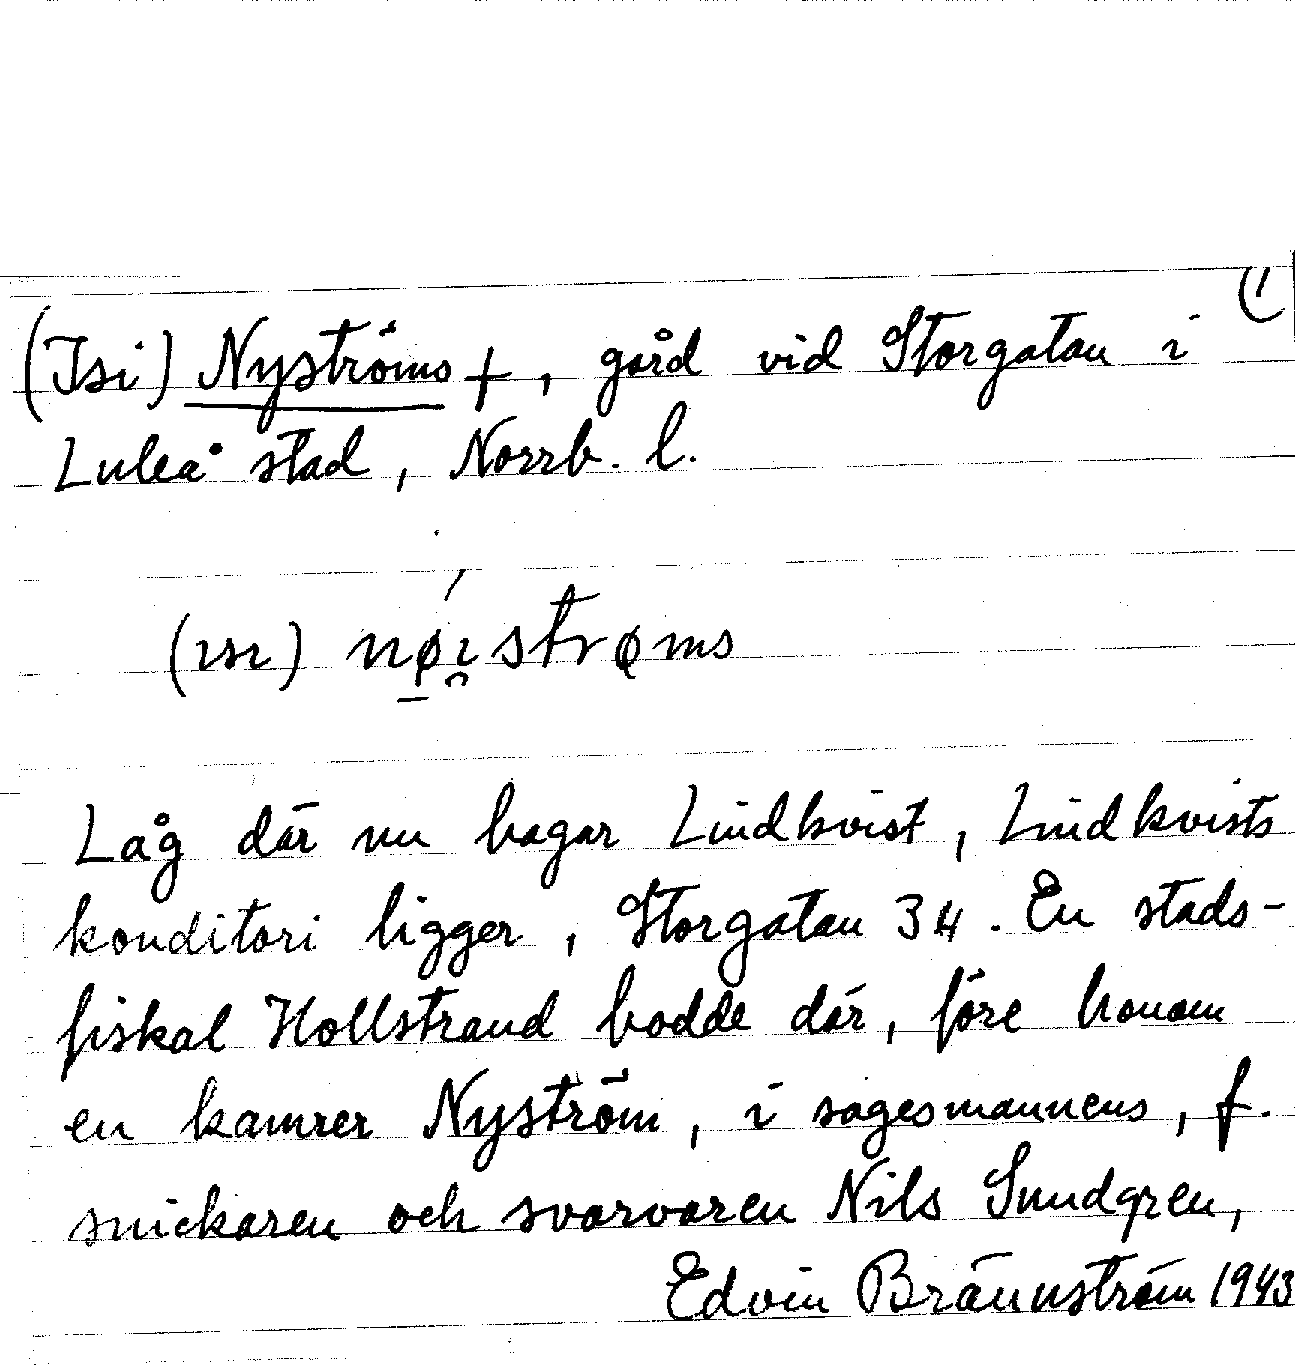 (1
(Isi) Nyströms +, gård vid Storgatan i
Luleå stad, Norrb. l.
(ısı) nø̱ı̯strøms
Låg där nu bagar Lindkvist, Lindkvists
konditori ligger, Storgatan 34. En stads-
fiskal Hollstrand bodde där, före honom
en kamrer Nyström, i sagesmannens, f.
snickaren och svarvaren Nils Sundgren,
Edvin Brännström 1943